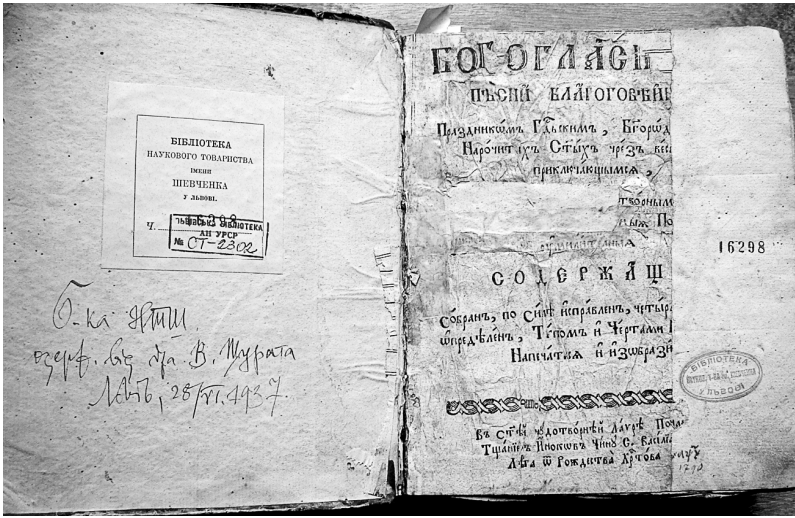 БІБЛІОТЕКА
НАУКОВОГО ТОВАРИСТВА
ІМЕНИ
ШЕВЧЕНКА
У ЛЬВОВІ.
Ч. 16298
ЛЬВІВСЬКА БІБЛІОТЕКА
АН УРСР
№ СТ-2302
Б-ка НТШ.
від В. Щурата
Львів, 28/VI. 1937.
БОГОГЛАСН
ПѢСНИ БЛАГОГОВѢЙН
Праздникѡмъ Гдⷭ҇скимъ, Бгоро́д
Наро́читыхъ Ст҃ы́хъ чре́зъ вес
приключа́ющымся,
творным
СОДЕРЖАЩ
Со́бранъ, по си́лѣ и҆спра́вленъ, четы́р
ѡ҆предѣ́ленъ, Ти́помъ и҆ Че́ртами
Напеча́тася и҆ и҆з̾ѡбрази
16298
БІБЛІОТЕКА
У ЛЬВОВІ
Въ ст҃ѣ́й чудотво́рнѣй Ла́ѵрѣ Поча
Тща́нїемъ И҆́нокѡвъ Чи́ну С. Васи́лїа
Лѣ́та ѿ Рождества̀ Хрⷭ҇то́ва
1790